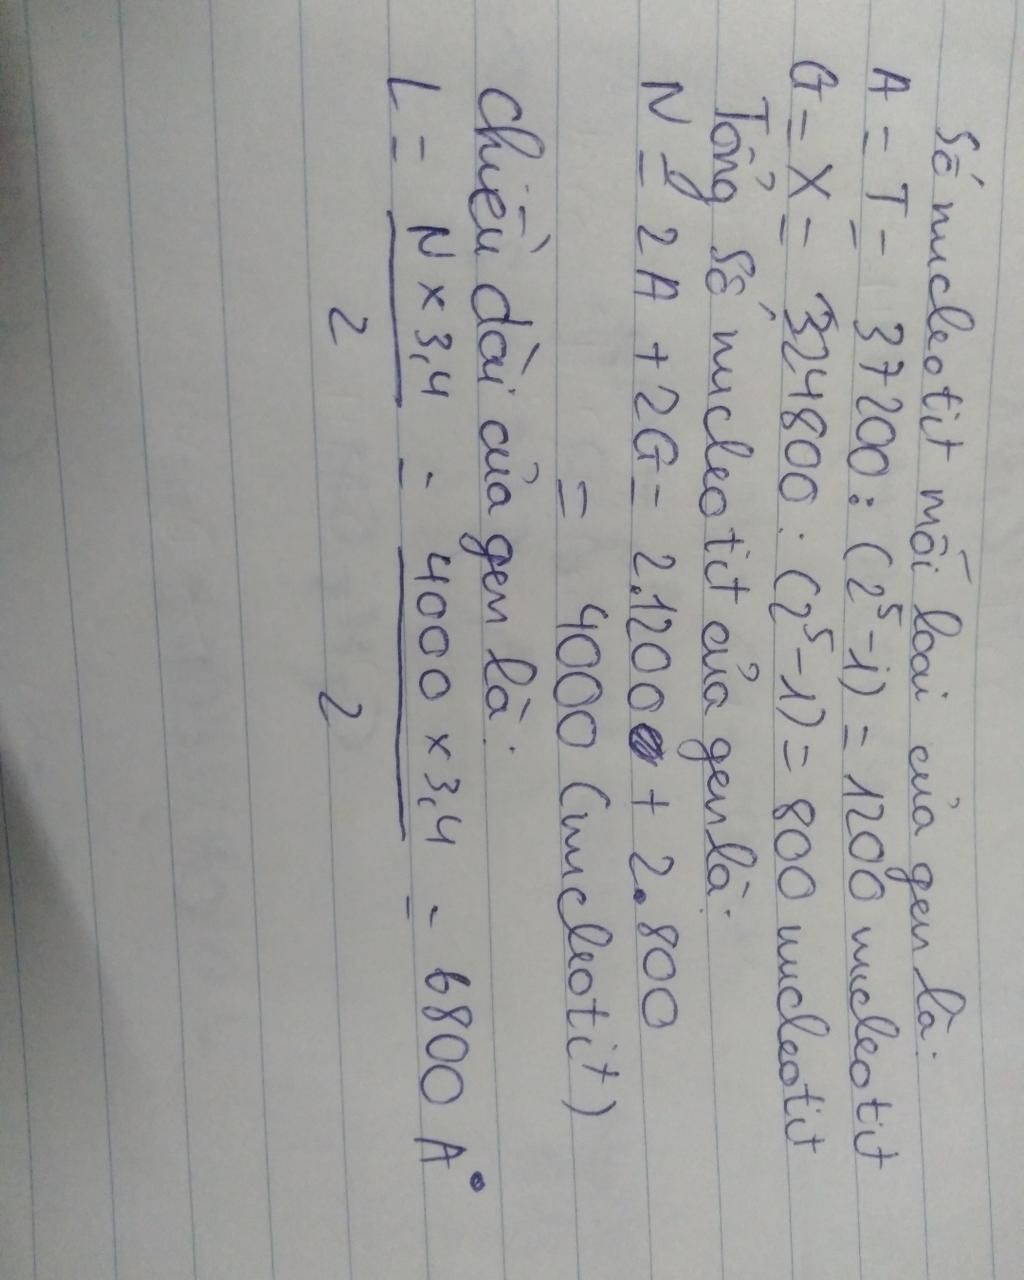 Số nucleotit mỗi loại của gen là:
A = T = 37200 : (2⁵-1) = 1200 nucleotit
G = X = 324800 : (2⁵-1) = 800 nucleotit
Tổng số nucleotit của gen là:
N = 2A + 2G = 2.1200 + 2.800
= 4000 (nucleotit)
Chiều dài của gen là:
L = N x 3,4 / 2 = 4000 x 3,4 / 2 = 6800 A°